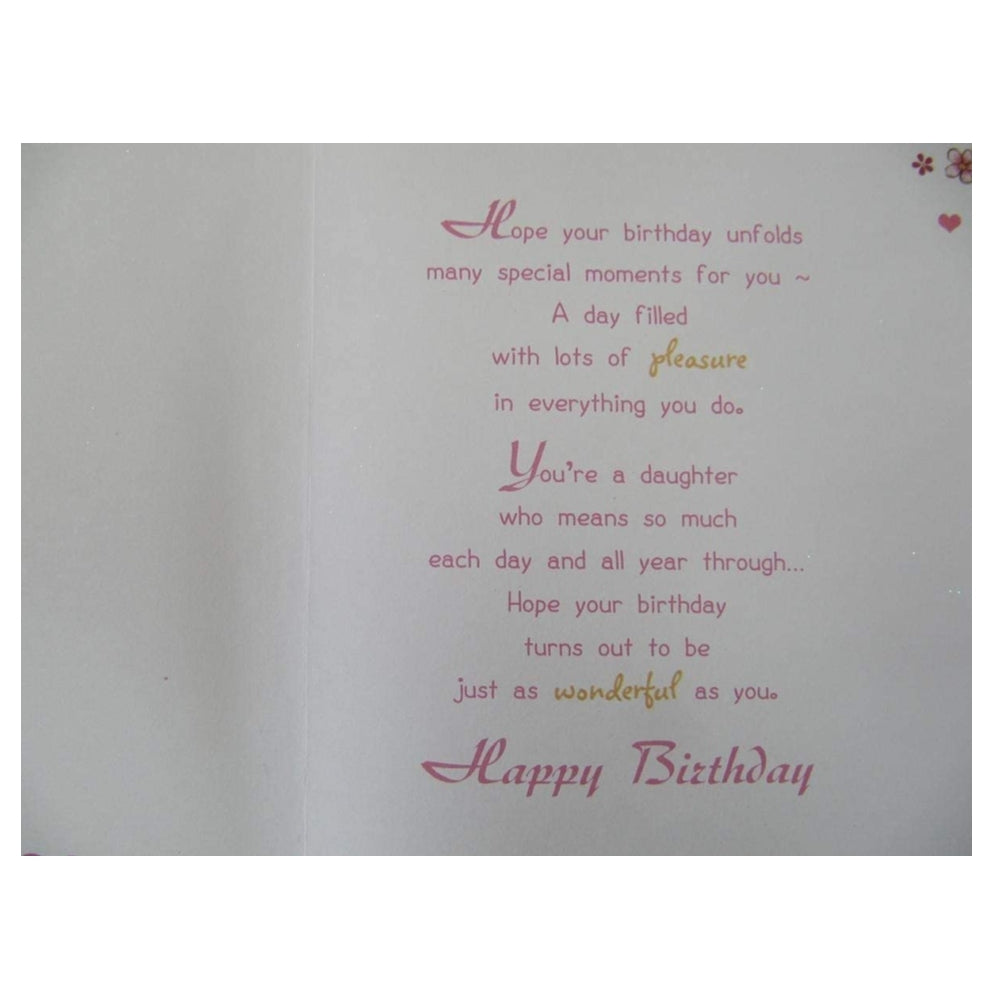 Hope your birthday unfolds
many special moments for you ~
A day filled
with lots of pleasure
in everything you do.
You're a daughter
who means so much
each day and all year through...
Hope your birthday
turns out to be
just as wonderful as you.
Happy Birthday